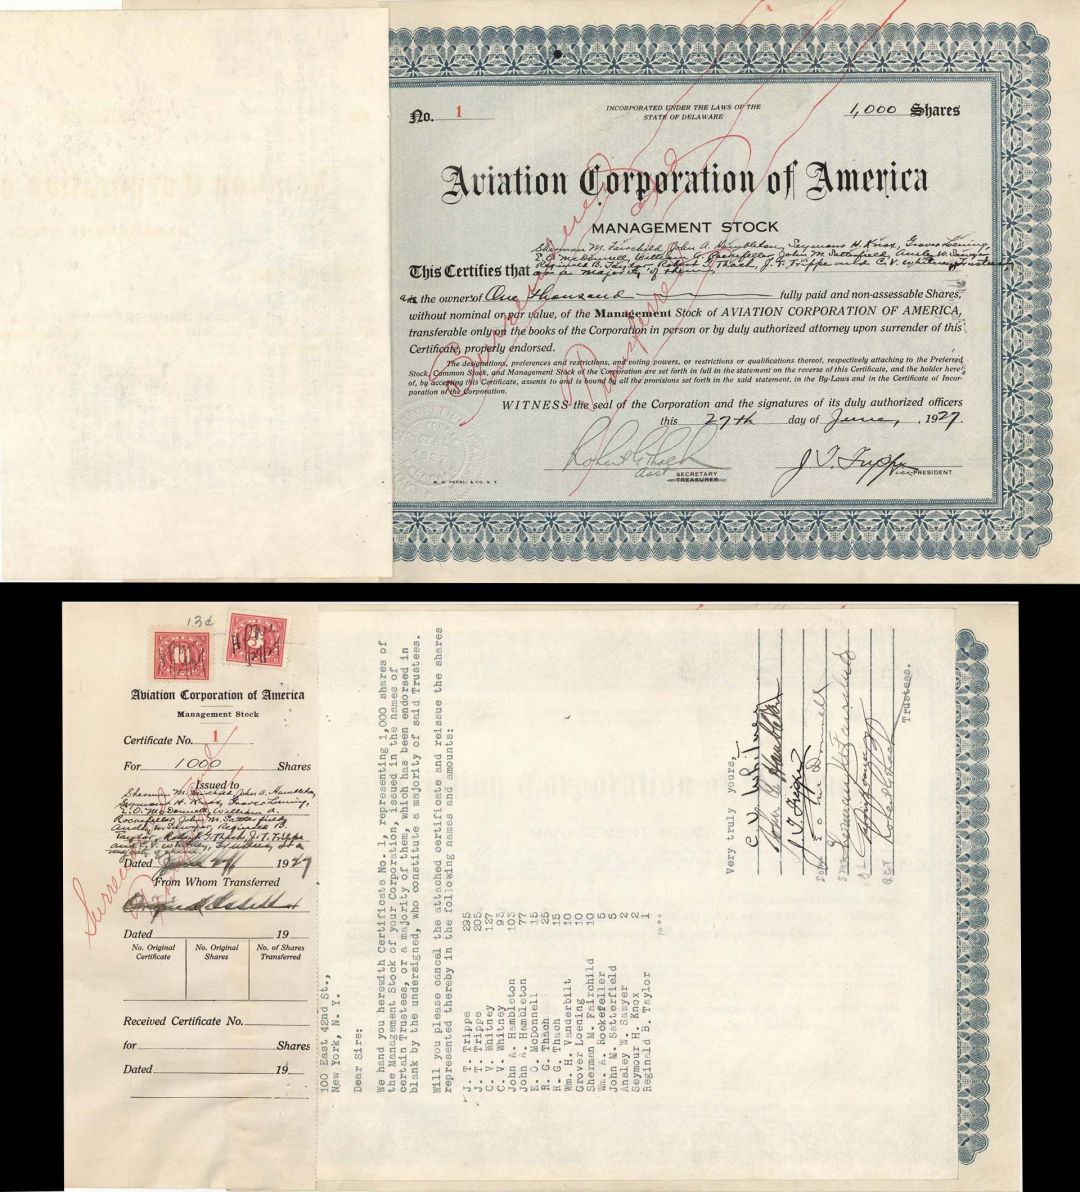 No. 1
INCORPORATED UNDER THE LAWS OF THE
STATE OF DELAWARE
1,000 Shares
Aviation Corporation of America
MANAGEMENT STOCK
Sherman M. Fairchild, John A. Hambleton, Seymour H. Knox, Grover Loening,
E. O. McDonnell, William A. Rockefeller, John M. Satterfield, Ansley W. Sawyer
This Certifies that Reginald B. Taylor, Robert G. Thach, J. T. Trippe and C. V. Whitney, Trustees
or a majority of them,
are the owners of One Thousand fully paid and non-assessable Shares,
without nominal or par value, of the Management Stock of AVIATION CORPORATION OF AMERICA,
transferable only on the books of the Corporation in person or by duly authorized attorney upon surrender of this
Certificate, properly endorsed.
The designations, preferences and restrictions, and voting powers, or restrictions or qualifications thereof, respectively attaching to the Preferred
Stock, Common Stock, and Management Stock of the Corporation are set forth in full in the statement on the reverse of this Certificate, and the holder here-
of, by accepting this Certificate, assents to and is bound by all the provisions set forth in the said statement, in the By-Laws and in the Certificate of Incor-
poration of the Corporation.
WITNESS the seal of the Corporation and the signatures of its duly authorized officers
this 27th day of June, 1927.
Surrendered and
Transferred
Robert G. Thach
Asst SECRETARY
TREASURER
J. T. Trippe
Vice PRESIDENT
13¢
Aviation Corporation of America
Management Stock
Certificate No. 1
For 1000 Shares
Issued to
Sherman M. Fairchild, John A. Hambleton,
Seymour H. Knox, Grover Loening,
E. O. McDonnell, William A.
Rockefeller, John M. Satterfield,
Ansley W. Sawyer, Reginald B.
Taylor, Robert G. Thach, J. T. Trippe
and C. V. Whitney, Trustees or a
majority of them
Dated June 27 1927
From Whom Transferred
Original Issue
Dated 19
No. Original Certificate
No. Original Shares
No. of Shares Transferred
Received Certificate No.
for Shares
Dated 19
100 East 42nd St.,
New York, N. Y.
Dear Sirs:
We hand you herewith Certificate No. 1, representing 1,000 shares of
the Management Stock of your Corporation, issued in the names of
certain Trustees, or a majority of them, which has been endorsed in
blank by the undersigned, who constitute a majority of said Trustees.
Will you please cancel the attached certificate and reissue the shares
represented thereby in the following names and amounts:
J. T. Trippe 295
J. T. Trippe 205
C. V. Whitney 127
C. V. Whitney 93
John A. Hambleton 103
John A. Hambleton 77
E. O. McDonnell 15
R. G. Thach 25
R. G. Thach 15
Wm. H. Vanderbilt 10
Grover Loening 10
Sherman M. Fairchild 10
Wm. A. Rockefeller 5
John M. Satterfield 5
Ansley W. Sawyer 2
Seymour H. Knox 2
Reginald B. Taylor 1
Very truly yours,
C. V. Whitney
John A. Hambleton
J. T. Trippe
E. O. McDonnell
Robert G. Thach
Trustees.